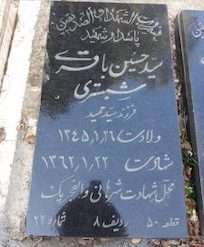 پاسدار شهید
سید حسین باقری
شبستری
فرزند سید حمید
ولادت ۱۳۴۵/۱/۲۶
شهادت ۱۳۶۲/۱/۲۲
محل شهادت شرهانی والفجر یک
قطعه ۵۰ ردیف ۸ شماره ۲۲